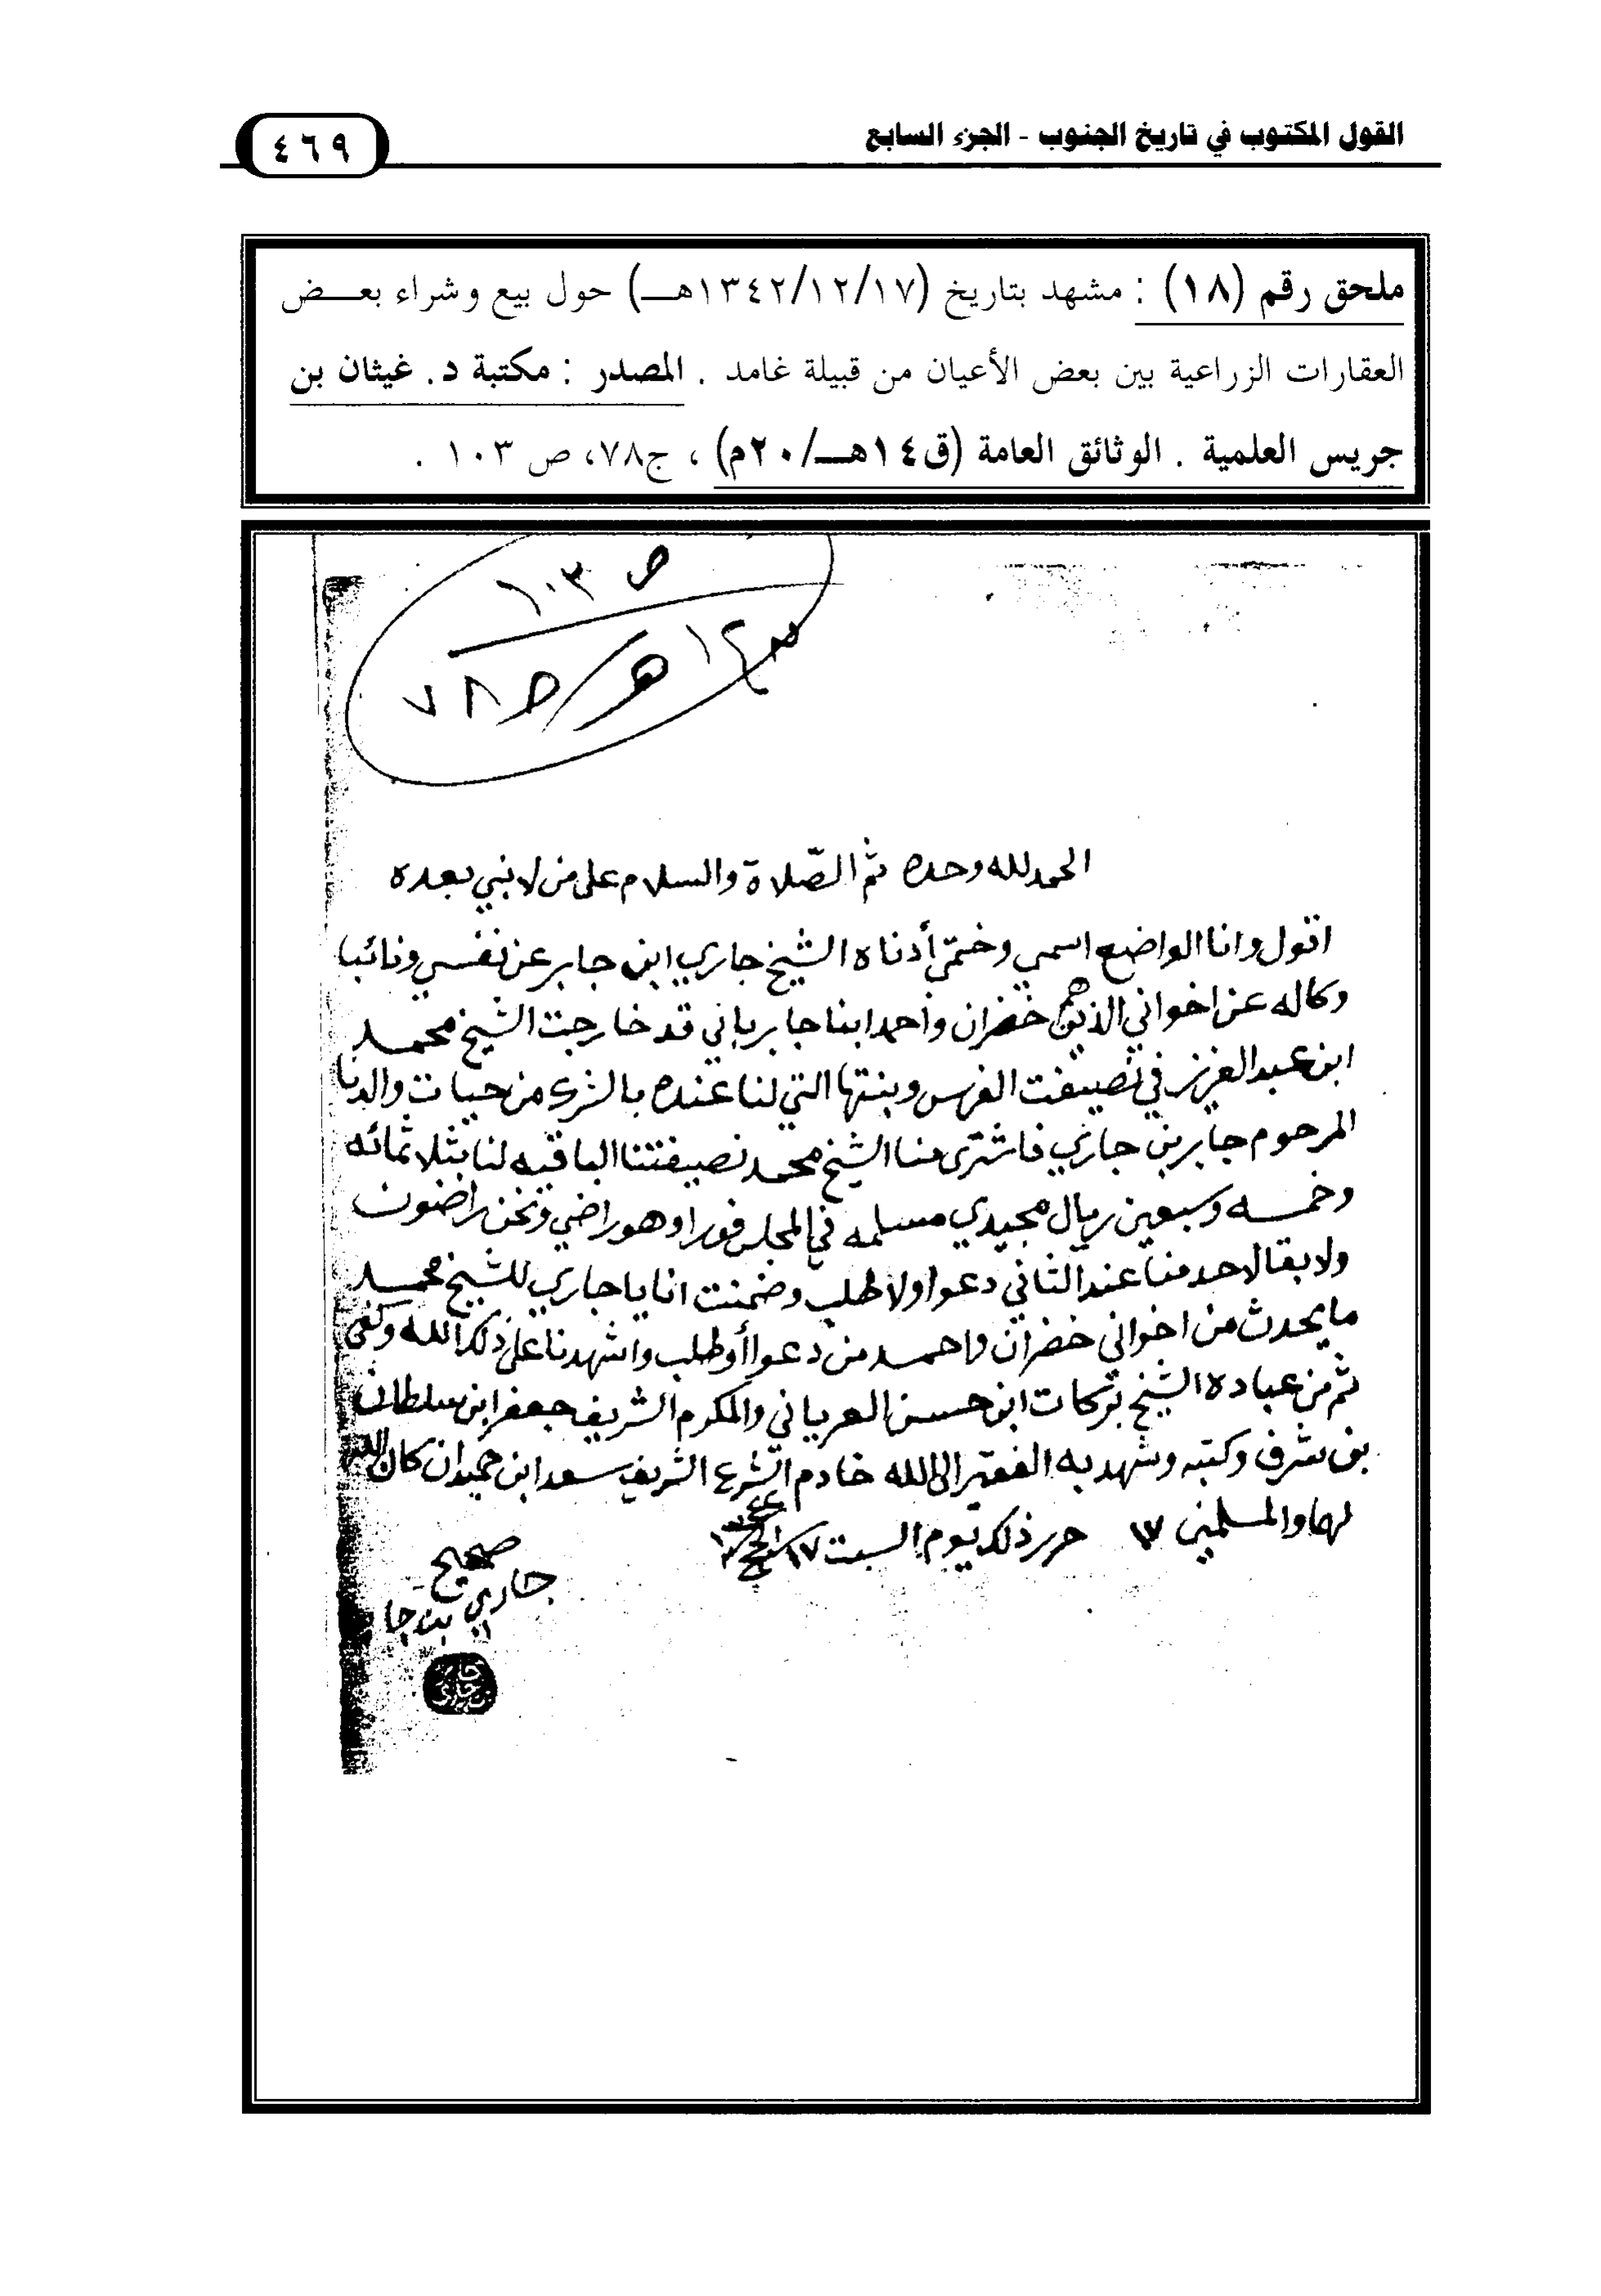 القول المكتوب في تاريخ الجنوب - الجزء السابع
٤٦٩
ملحق رقم (١٨) : مشهد بتاريخ (١٣٤٢/١٢/١٧هـ) حول بيع وشراء بعض
العقارات الزراعية بين بعض الأعيان من قبيلة غامد . المصدر : مكتبة د. غيثان بن
جريس العلمية . الوثائق العامة (ق١٤هـ/٢٠م) ، ج٧٨، ص ١٠٣ .
ص ١٠٣
١٤ هـ/ص ٧٨
الحمد لله وحده ثم الصّلاة والسلام على من لا نبي بعده
اقول وانا الواضع اسمي وختمي أدناه الشيخ جاري ابن جابر عن نفسي ونائبا
وكاله عن اخواني الذين هم خضران واحمد ابنا جابر باني قد خارجت الشيخ محمد
ابن عبد العزيز في نصيفت الفرس وبنتها التي لنا عنده بالشرك من حيات والدنا
المرحوم جابر بن جاري فاشترى منا الشيخ محمد نصيفتنا الباقيه لنا بثلاثمائه
وخمسه وسبعين ريال مجيدي مسلمه في المجلس فورا وهو راضي ونحن راضون
ولا بقا لاحد منا عند الثاني دعوا ولا طلب وضمنت انا يا جاري للشيخ محمد
ما يحدث من اخواني خضران واحمد من دعوا أو طلب واشهدنا على ذلك الله وكفى
ثم من عباده الشيخ بركات ابن حسن العرياني والمكرم الشريف جعفر ابن سلطان
بن شرف وكتبه وشهد به الفقير الى الله خادم الشرع الشريف سعد ابن حميدان كان الله
لهما والمسلمين حرر ذلك يوم السبت ١٧ الحج
صحيح
جاري بن جا